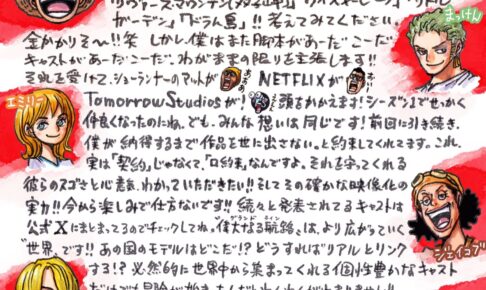 ガーデン」「ドラム島」!! 考えてみてください。
金かかりそ〜!!笑 しかし、僕はまた脚本があーだこーだ
キャストがあーだこーだ、わがままの限りを主張します!!
それを受けて、ショーランナーのマットが NETFLIXが
Tomorrow Studiosが! 頭をかかえます! シーズン1でせっかく
仲良くなったのにね。でも、みんな想いは同じです! 前回に引き続き、
僕が納得するまで作品を世に出さない。と約束してくれてます。これ、
実は「契約」じゃなくて、「口約束」なんですよ。それを守ってくれる
彼らのスゴさと心意気、わかっていただきたい!! そしてその確かな映像化の
実力!! 今から楽しみで仕方ないです!! 続々と発表されてるキャストは
公式Xにまとまってるのでチェックしてね。"偉大なる航路"は、より広がっていく
グランド ライン
"世界"です!! あの国のモデルはどこだ!? どうすればリアルとリンク
する!? 必然的に世界中から集まってくれる個性豊かなキャスト
まっけん
エミリー
ジェイコブ